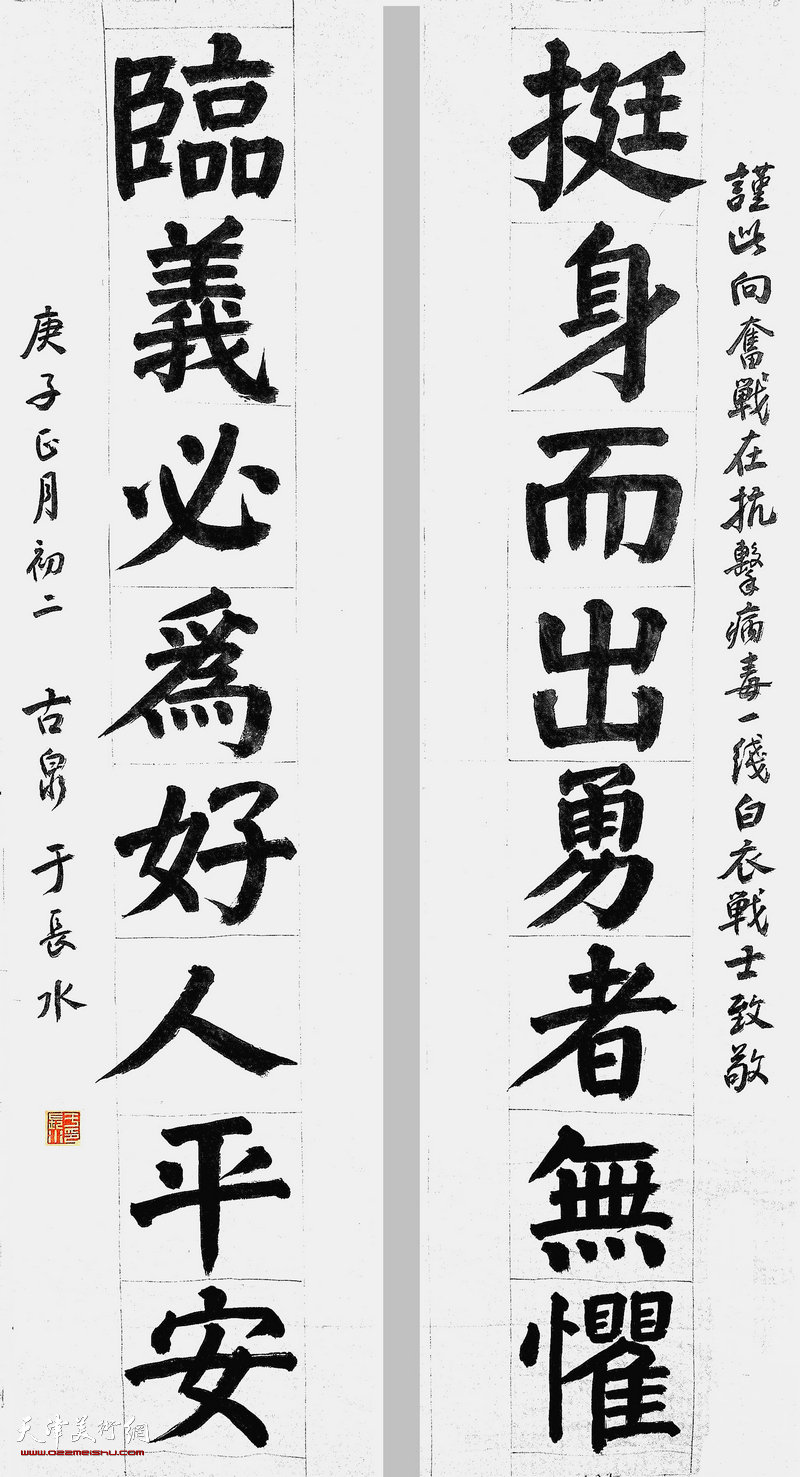 謹此向奮戰在抗擊病毒一线白衣戰士致敬
挺身而出勇者無懼
臨義必為好人平安
庚子正月初二 古泉 于長水
天津美術網
www.022meishu.com